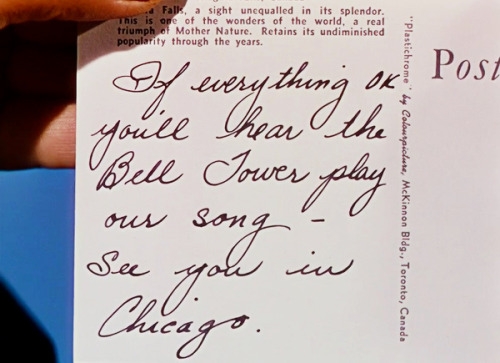 Falls, a sight unequalled in its splendor.
This is one of the wonders of the world, a real
triumph of Mother Nature. Retains its undiminished
popularity through the years.
If everything OK
you'll hear the
Bell Tower play
our song –
See you in
Chicago.
"Plastichrome" by Colourpicture, McKinnon Bldg., Toronto, Canada
Post